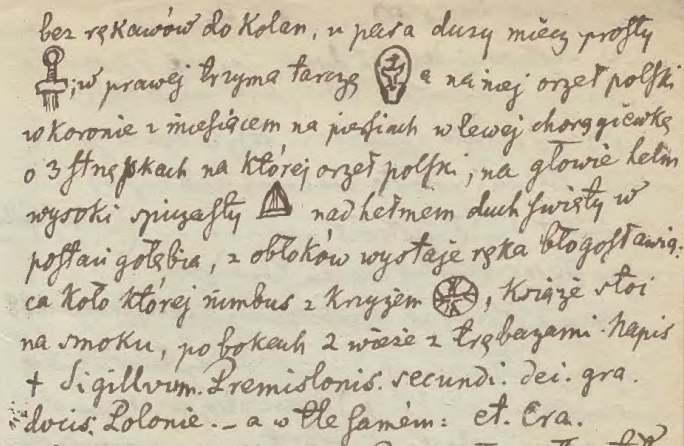 bez rękawów do kolan, u pasa duży miecz prosty
; w prawej trzyma tarczę a na niej orzeł polski
w koronie z miesiącem na piersiach w lewej chorągiewkę
o 3 strzępkach na której orzeł polski, na głowie hełm
wysoki spiczasty nad hełmem duch święty w
postaci gołębia, z obłoków wystaje ręka błogosławią:
ca koło której nimbus z krzyżem , książe stoi
na smoku, po bokach 2 wieże z trębaczami. Napis
+ Sigillvvm. Premislonis. secundi. dei. gra.
docis. Polonie. – a w tle samém: et. Cra.